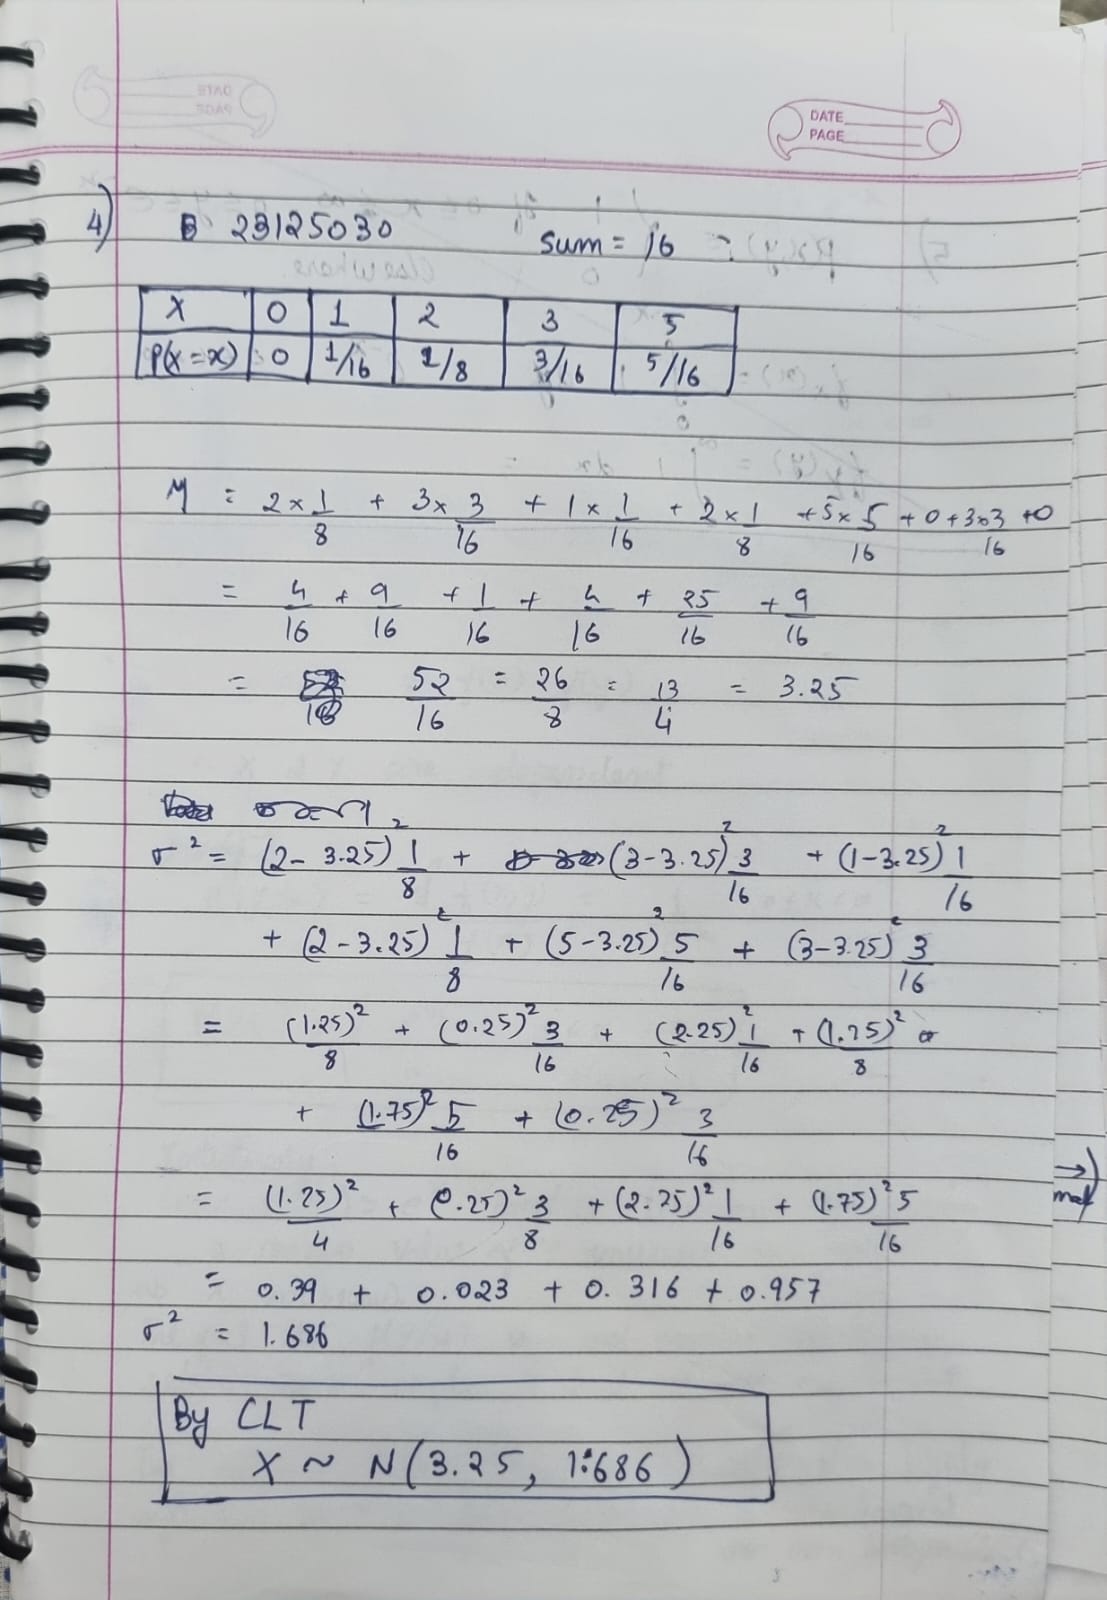 DATE
PAGE
4) 23125030 sum = 16
X 0 1 2 3 5
P(X=x) 0 1/16 1/8 3/16 5/16
M = 2×1/8 + 3×3/16 + 1×1/16 + 2×1/8 + 5×5/16 + 0 + 3×3/16 + 0
= 4/16 + 9/16 + 1/16 + 4/16 + 25/16 + 9/16
= 52/16 = 26/8 = 13/4 = 3.25
σ² = (2-3.25)² 1/8 + (3-3.25)² 3/16 + (1-3.25)² 1/16
+ (2-3.25)² 1/8 + (5-3.25)² 5/16 + (3-3.25)² 3/16
= (1.25)²/8 + (0.25)² 3/16 + (2.25)² 1/16 + (1.25)²/8
+ (1.75)² 5/16 + (0.25)² 3/16
= (1.25)²/4 + (0.25)² 3/8 + (2.25)² 1/16 + (1.75)² 5/16
= 0.39 + 0.023 + 0.316 + 0.957
σ² = 1.686
By CLT
X ~ N(3.25, 1.686)